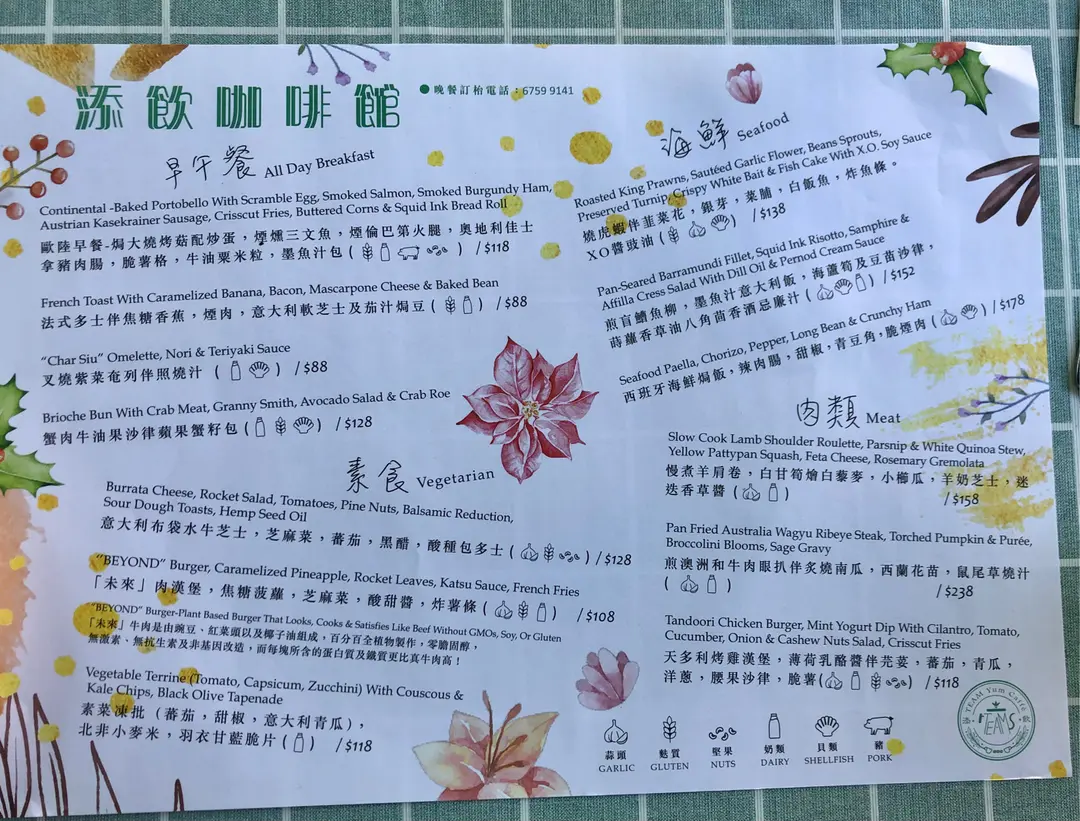 添飲咖啡館
●晚餐訂枱電話：6759 9141
早午餐 All Day Breakfast
Continental -Baked Portobello With Scramble Egg, Smoked Salmon, Smoked Burgundy Ham,
Austrian Kasekrainer Sausage, Crisscut Fries, Buttered Corns & Squid Ink Bread Roll
歐陸早餐-焗大燒烤菇配炒蛋，煙燻三文魚，煙倫巴第火腿，奧地利佳士
拿豬肉腸，脆薯格，牛油粟米粒，墨魚汁包 ( ) / $118
French Toast With Caramelized Banana, Bacon, Mascarpone Cheese & Baked Bean
法式多士伴焦糖香蕉，煙肉，意大利軟芝士及茄汁焗豆 ( ) / $88
“Char Siu” Omelette, Nori & Teriyaki Sauce
叉燒紫菜奄列伴照燒汁 ( ) / $88
Brioche Bun With Crab Meat, Granny Smith, Avocado Salad & Crab Roe
蟹肉牛油果沙律蘋果蟹籽包 ( ) / $128
素食 Vegetarian
Burrata Cheese, Rocket Salad, Tomatoes, Pine Nuts, Balsamic Reduction,
Sour Dough Toasts, Hemp Seed Oil
意大利布袋水牛芝士，芝麻菜，蕃茄，黑醋，酸種包多士 ( ) / $128
“BEYOND” Burger, Caramelized Pineapple, Rocket Leaves, Katsu Sauce, French Fries
「未來」肉漢堡，焦糖菠蘿，芝麻菜，酸甜醬，炸薯條 ( ) / $108
“BEYOND” Burger-Plant Based Burger That Looks, Cooks & Satisfies Like Beef Without GMOs, Soy, Or Gluten
「未來」牛肉是由豌豆、紅菜頭以及椰子油組成，百分百全植物製作，零膽固醇，
無激素、無抗生素及非基因改造，而每塊所含的蛋白質及鐵質更比真牛肉高！
Vegetable Terrine (Tomato, Capsicum, Zucchini) With Couscous &
Kale Chips, Black Olive Tapenade
素菜凍批（蕃茄，甜椒，意大利青瓜），
北非小麥米，羽衣甘藍脆片 ( ) / $118
海鮮 Seafood
Roasted King Prawns, Sautéed Garlic Flower, Beans Sprouts,
Preserved Turnip, Crispy White Bait & Fish Cake With X.O. Soy Sauce
燒虎蝦伴韮菜花，銀芽，菜脯，白飯魚，炸魚條。
XO醬豉油 ( ) / $138
Pan-Seared Barramundi Fillet, Squid Ink Risotto, Samphire &
Affilla Cress Salad With Dill Oil & Pernod Cream Sauce
煎盲鰽魚柳，墨魚汁意大利飯，海蘆筍及豆苗沙律，
蒔蘿香草油八角茴香酒忌廉汁 ( ) / $152
Seafood Paella, Chorizo, Pepper, Long Bean & Crunchy Ham
西班牙海鮮焗飯，辣肉腸，甜椒，青豆角，脆煙肉 ( ) / $178
肉類 Meat
Slow Cook Lamb Shoulder Roulette, Parsnip & White Quinoa Stew,
Yellow Pattypan Squash, Feta Cheese, Rosemary Gremolata
慢煮羊肩卷，白甘筍燴白藜麥，小櫛瓜，羊奶芝士，迷
迭香草醬 ( ) / $158
Pan Fried Australia Wagyu Ribeye Steak, Torched Pumpkin & Purée,
Broccolini Blooms, Sage Gravy
煎澳洲和牛肉眼扒伴炙燒南瓜，西蘭花苗，鼠尾草燒汁
( ) / $238
Tandoori Chicken Burger, Mint Yogurt Dip With Cilantro, Tomato,
Cucumber, Onion & Cashew Nuts Salad, Crisscut Fries
天多利烤雞漢堡，薄荷乳酪醬伴芫荽，蕃茄，青瓜，
洋蔥，腰果沙律，脆薯( ) / $118
蒜頭 麩質 堅果 奶類 貝類 豬
GARLIC GLUTEN NUTS DAIRY SHELLFISH PORK
TEAM Yum Caffé
TEAMS
添飲